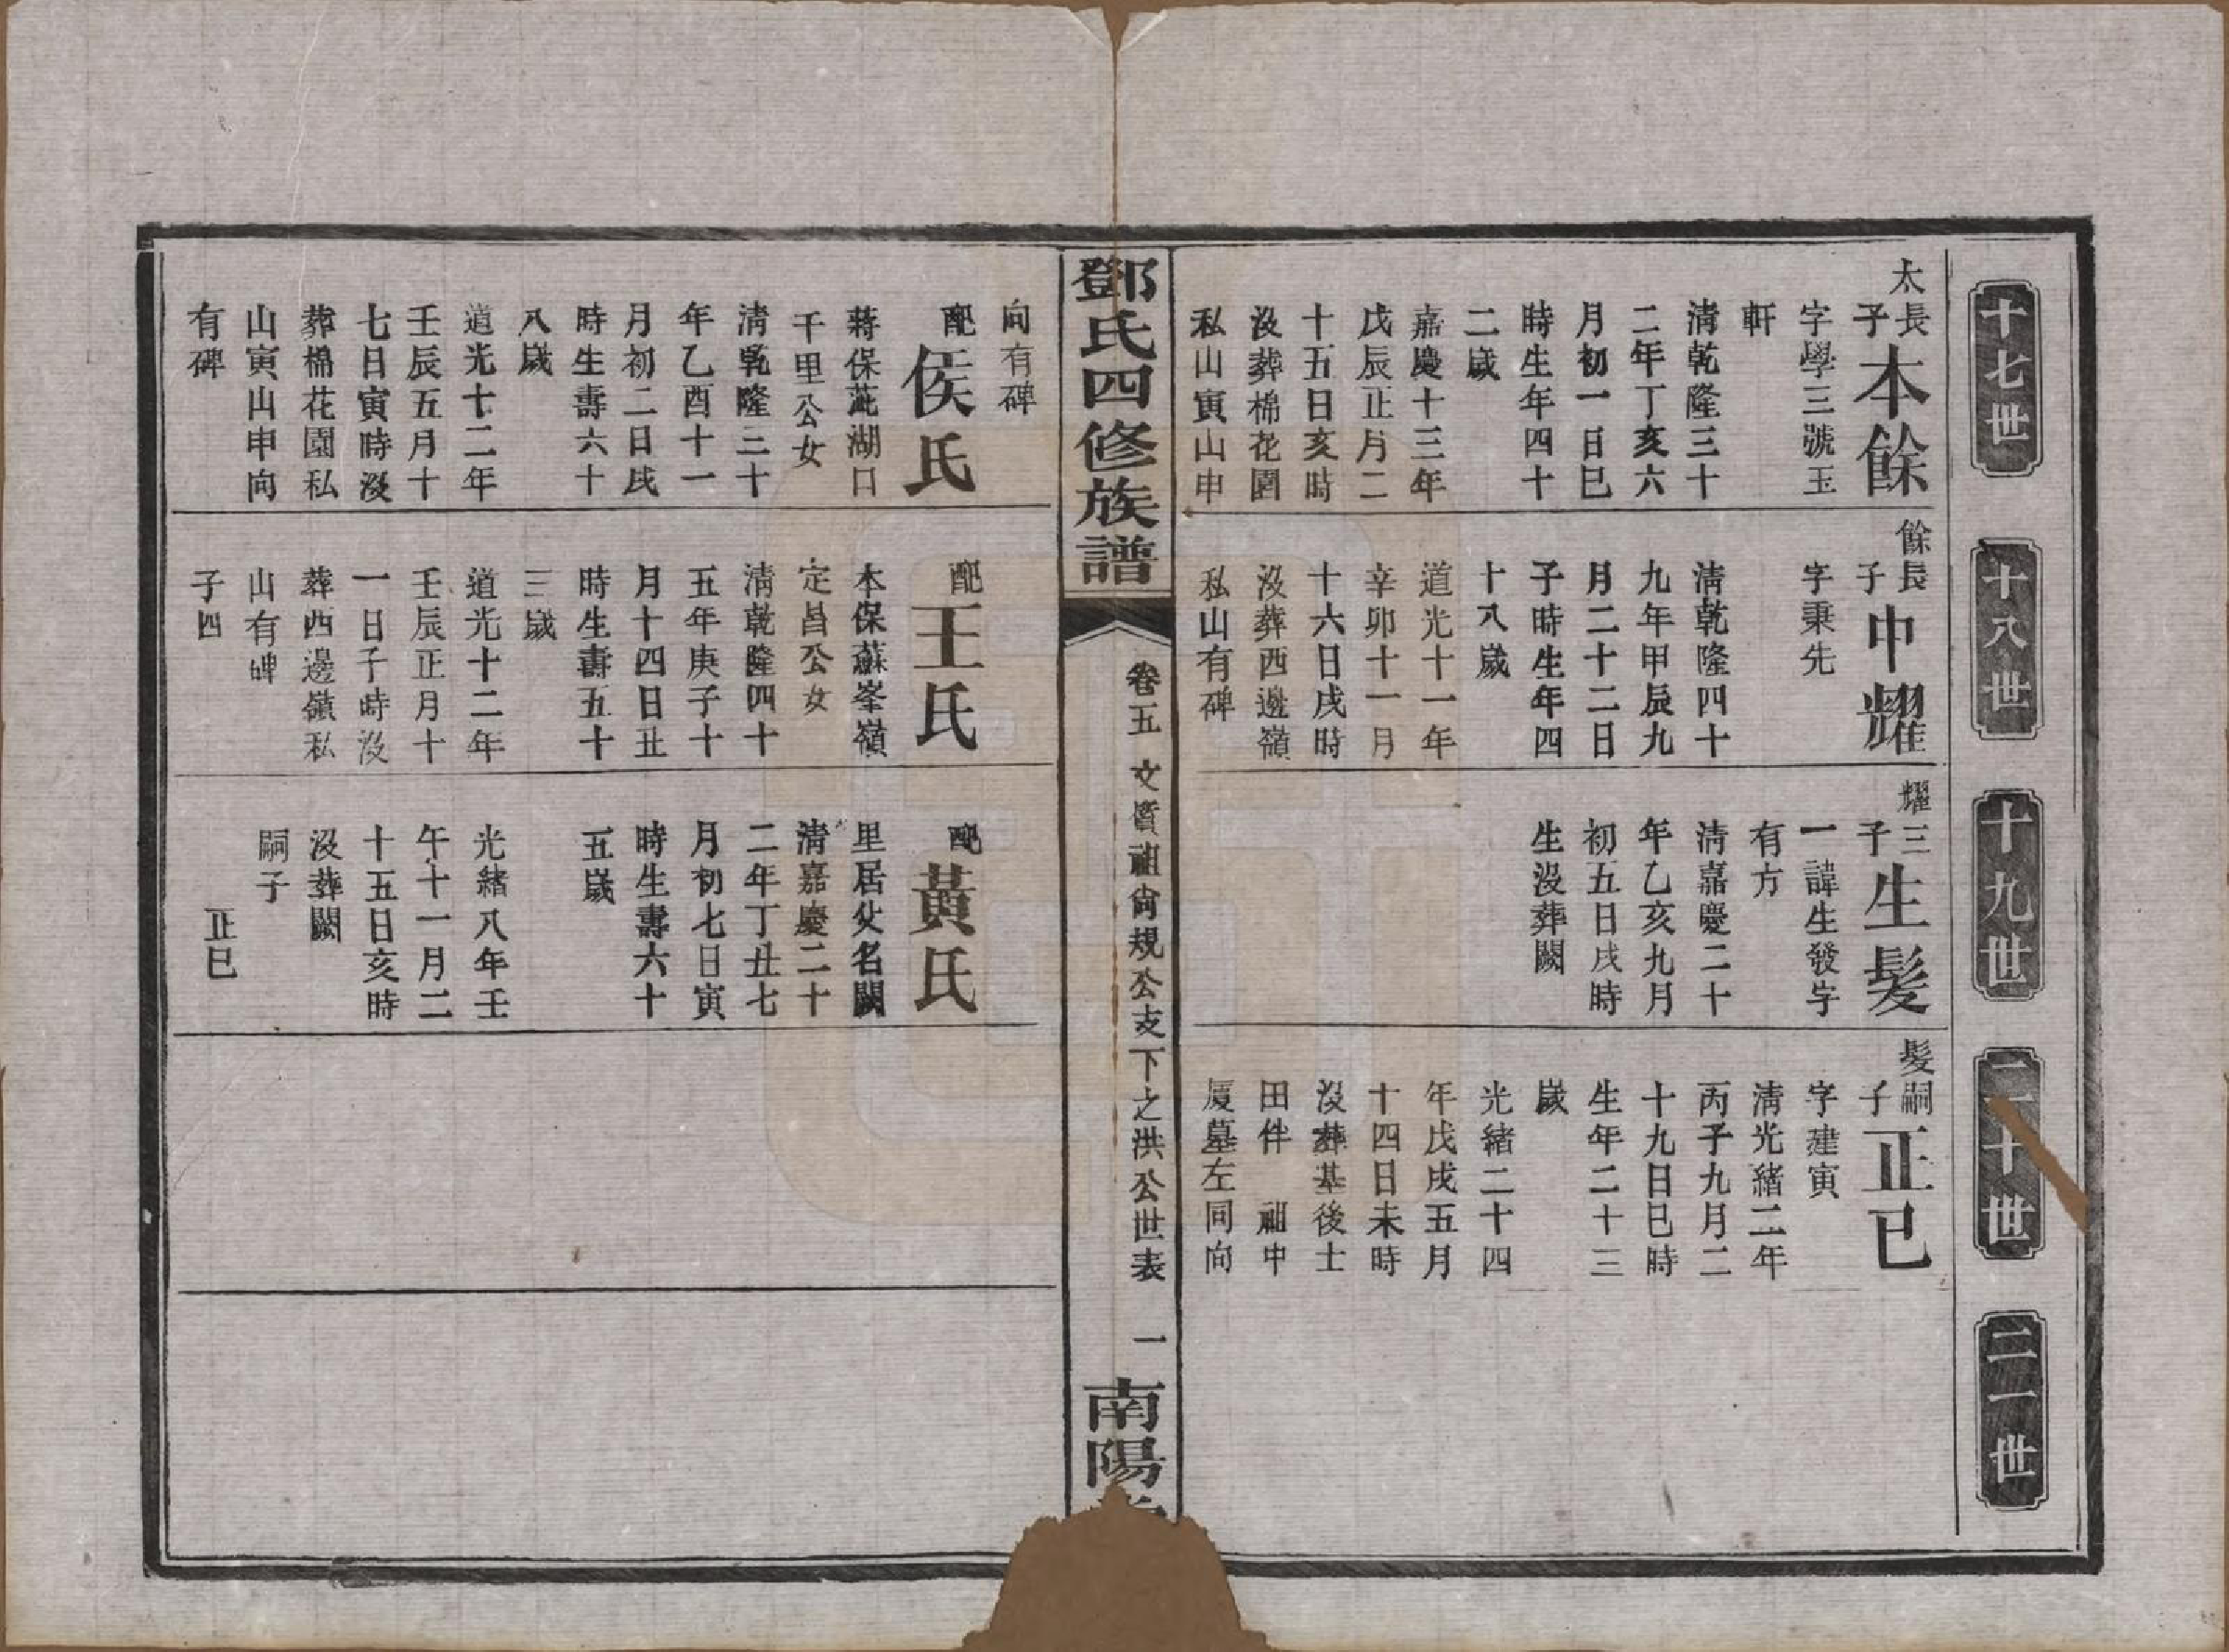 十七世
十八世
十九世
二十世
二一世
太長子本餘
字學三號玉
軒
清乾隆三十
二年丁亥六
月初一日巳
時生年四十
二歲
嘉慶十三年
戊辰正月二
十五日亥時
沒葬棉花園
私山寅山申
向有碑
配侯氏
蔣保茈湖口
千里公女
清乾隆三十
年乙酉十一
月初二日戌
時生壽六十
八歲
道光十二年
壬辰五月十
七日寅時沒
葬棉花園私
山寅山申向
有碑
餘長子中耀
字秉先
清乾隆四十
九年甲辰九
月二十二日
子時生年四
十八歲
道光十一年
辛卯十一月
十六日戌時
沒葬西邊嶺
私山有碑
配王氏
本保蘇峯嶺
定昌公女
清乾隆四十
五年庚子十
月十四日丑
時生壽五十
三歲
道光十二年
壬辰正月十
一日子時沒
葬西邊嶺私
山有碑
子四
耀三子生髮
一諱生發字
有方
清嘉慶二十
年乙亥九月
初五日戌時
生沒葬闕
配黃氏
里居父名闕
清嘉慶二十
二年丁丑七
月初七日寅
時生壽六十
五歲
光緒八年壬
午十一月二
十五日亥時
沒葬闕
嗣子
正已
髮嗣子正已
字建寅
清光緒二年
丙子九月二
十九日巳時
生年二十三
歲
光緒二十四
年戊戌五月
十四日未時
沒葬基後土
田伴 祖中
厦墓左同向
鄧氏四修族譜
卷五 文質祖尙規公支下之洪公世表 一
南陽